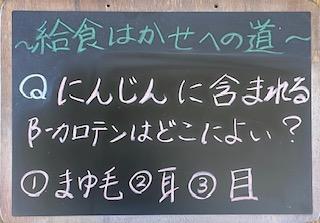 ～給食はかせへの道～
Q にんじんに含まれる
β-カロテンはどこによい？
①まゆ毛②耳③目